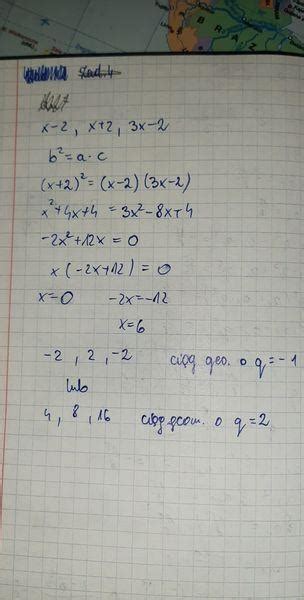 BRA
Zad. 4
x-2 , x+2 , 3x-2
b² = a · c
(x+2)² = (x-2)(3x-2)
x²+4x+4 = 3x²-8x+4
-2x²+12x = 0
x(-2x+12) = 0
x=0 -2x=-12
x=6
-2 , 2 , -2 ciąg geo. o q=-1
lub
4 , 8 , 16 ciąg geom. o q=2